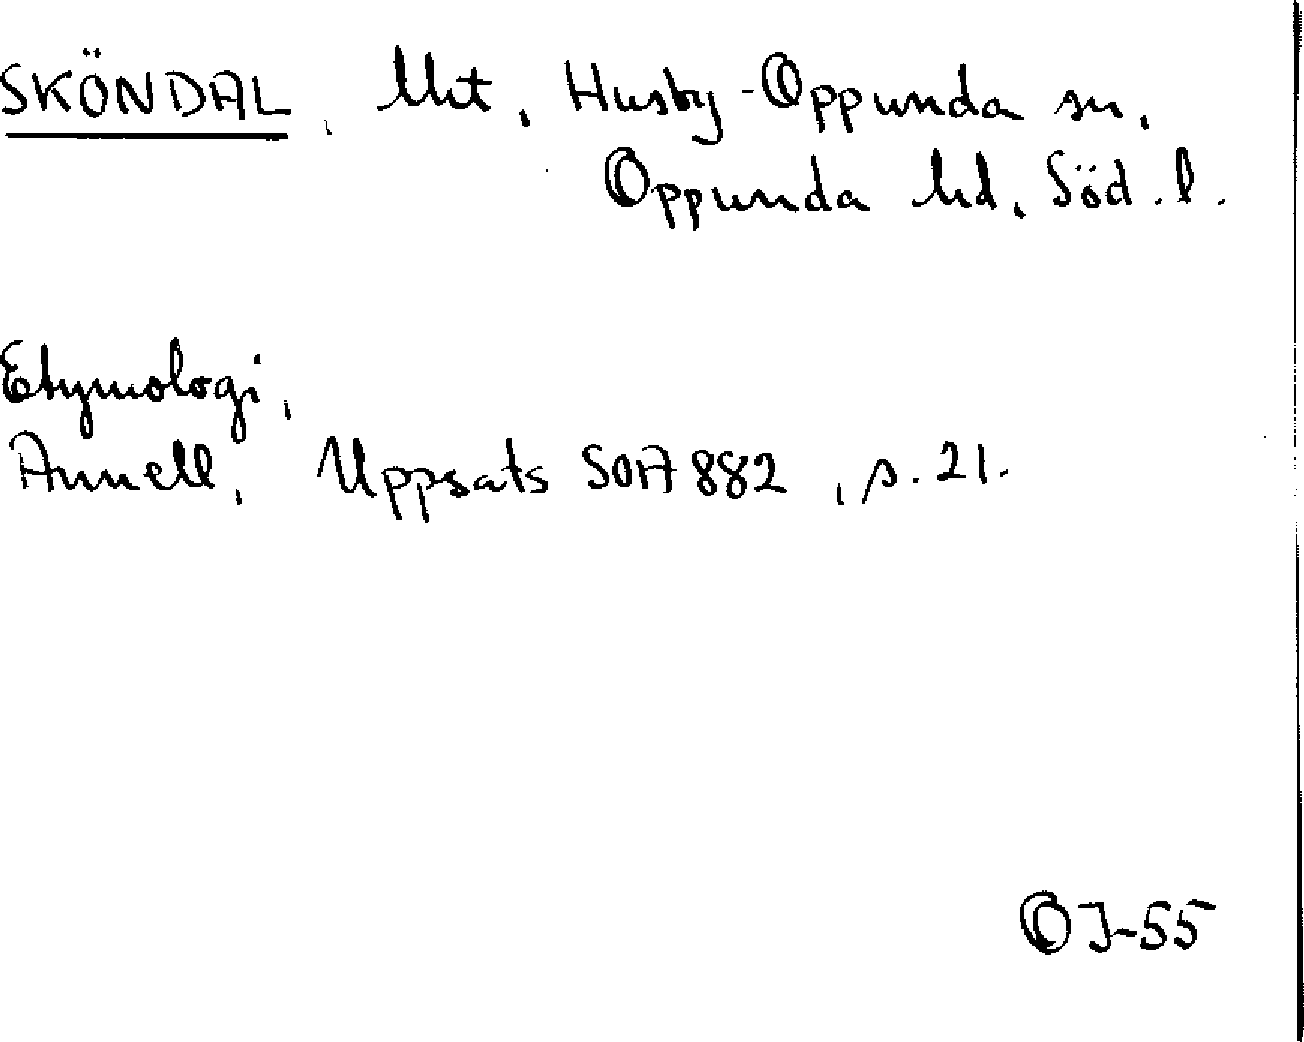 SKÖNDAL, lht, Husby-Oppunda sn,
Oppunda hd, Söd. l.
Etymologi,
Annell, Uppsats SOA 882, s. 21.
OJ-55